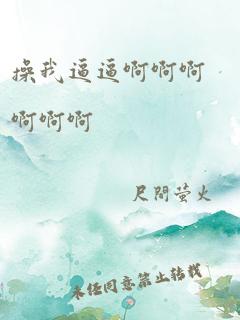 操我逼逼啊啊啊
啊啊啊
尺間萤火
未经同意禁止转载